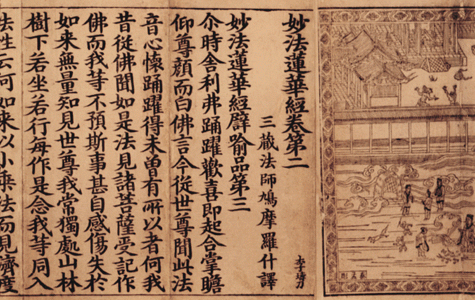 妙法蓮華經卷第二
三藏法師鳩摩羅什譯
妙法蓮華經譬喻品第三
尒時舍利弗踊躍歡喜即起合掌瞻
仰尊顏而白佛言今從世尊聞此法
音心懷踊躍得未曾有所以者何我
昔從佛聞如是法見諸菩薩受記作
佛而我等不預斯事甚自感傷失於
如來無量知見世尊我常獨處山林
樹下若坐若行每作是念我等同入
法性云何如來以小乘法而見濟度